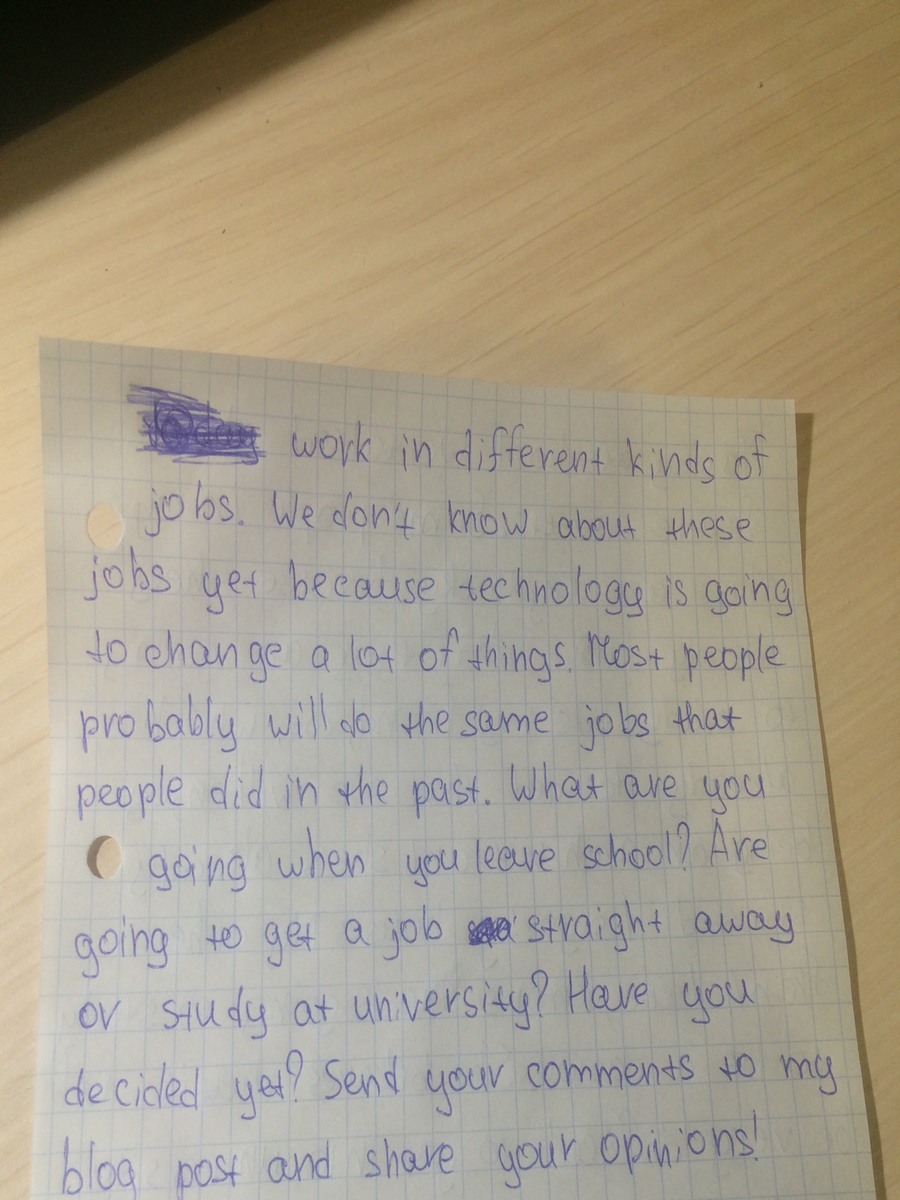 work in different kinds of
jobs. We don't know about these
jobs yet because technology is going
to change a lot of things. Most people
probably will do the same jobs that
people did in the past. What are you
going when you leave school? Are
going to get a job straight away
or study at university? Have you
decided yet? Send your comments to my
blog post and share your opinions!